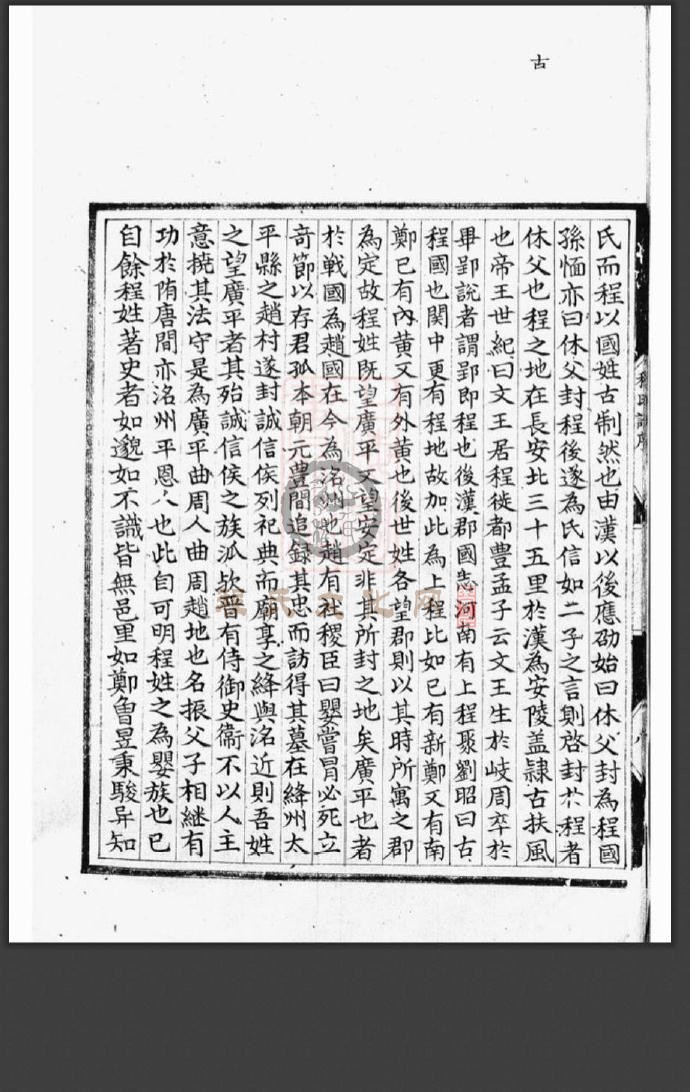 古
氏而程以國姓古制然也由漢以後應劭始曰休父封為程國
孫愐亦曰休父封程後遂為氏信如二子之言則啓封於程者
休父也程之地在長安北三十五里於漢為安陵盖隷古扶風
也帝王世紀曰文王居程徙都豊孟子云文王生於岐周卒於
畢郢說者謂郢即程也後漢郡國志河南有上程聚劉昭曰古
程國也関中更有程地故加此為上程比如已有新鄭又有南
鄭已有內黄又有外黄也後世姓各望郡則以其時所寓之郡
為定故程姓既望廣平又望安定非其所封之地矣廣平也者
於戦國為趙國在今為洺州也趙有社稷臣曰嬰嘗冒必死立
竒節以存君孤本朝元豊間追録其忠而訪得其墓在絳州太
平縣之趙村遂封誠信侯列祀典而廟享之絳與洺近則吾姓
之望廣平者其殆誠信侯之族派欤晋有侍御史衞不以人主
意撓其法守是為廣平曲周人曲周趙地也名振父子相継有
功於隋唐間亦洺州平恩人也此自可明程姓之為嬰族也已
自餘程姓著史者如邈如不識皆無邑里如鄭魯昱秉駿异知